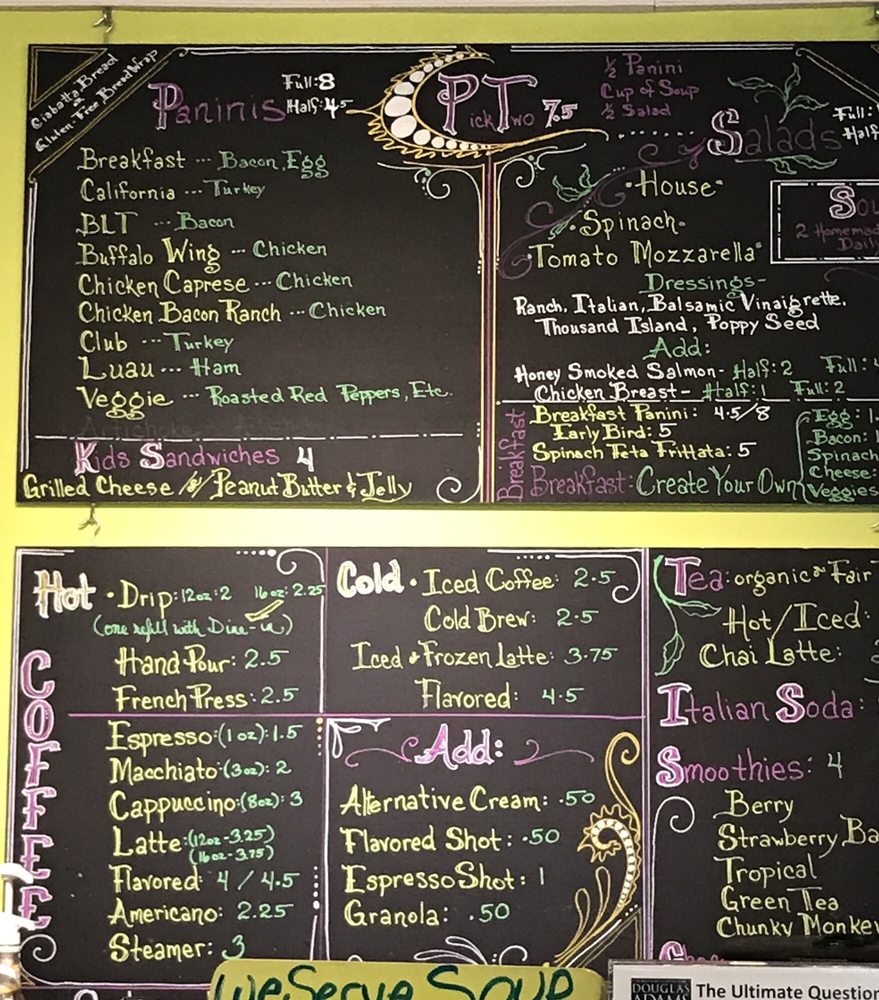 Ciabatta Bread
or
Gluten-Free Bread Wrap
Paninis
Full: 8
Half: 4.5
Breakfast --- Bacon, Egg
California --- Turkey
BLT --- Bacon
Buffalo Wing --- Chicken
Chicken Caprese --- Chicken
Chicken Bacon Ranch --- Chicken
Club --- Turkey
Luau --- Ham
Veggie --- Roasted Red Peppers, Etc.
Kids Sandwiches 4
Grilled Cheese Peanut Butter & Jelly
Pick Two 7.5
1/2 Panini
Cup of Soup
1/2 Salad
Salads
Full:
Half
House
Spinach
Tomato Mozzarella
Sou
2 Homemad
Daily
Dressings-
Ranch, Italian, Balsamic Vinaigrette,
Thousand Island, Poppy Seed
Add:
Honey Smoked Salmon- Half: 2 Full: 4
Chicken Breast- Half: 1 Full: 2
Breakfast
Breakfast Panini: 4.5/8
Early Bird: 5
Spinach Feta Frittata: 5
Breakfast: Create Your Own
Egg: 1.
Bacon: 1
Spinach
Cheese:
Veggies
COFFEE
Hot • Drip: 12oz: 2 16oz: 2.25
(one refill with Dine-in)
Hand Pour: 2.5
French Press: 2.5
Espresso: (1oz): 1.5
Macchiato: (3oz): 2
Cappuccino: (8oz): 3
Latte: (12oz-3.25)
(16oz-3.75)
Flavored 4/4.5
Americano: 2.25
Steamer: 3
Cold • Iced Coffee: 2.5
Cold Brew: 2.5
Iced & Frozen Latte: 3.75
Flavored: 4.5
Add:
Alternative Cream: .50
Flavored Shot: .50
Espresso Shot: 1
Granola: .50
Tea: organic & Fair
Hot/Iced:
Chai Latte:
Italian Soda:
Smoothies: 4
Berry
Strawberry Ba
Tropical
Green Tea
Chunky Monkey
We Serve Soup
DOUGLAS
ADAMS
The Ultimate Question